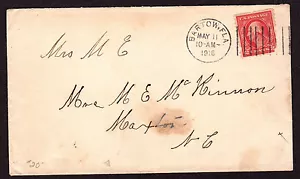 BARTOW, FLA.
MAY 11
10-AM
1916
Mrs M E
Mrs M E McKinnon
Maxton
N C
"20"